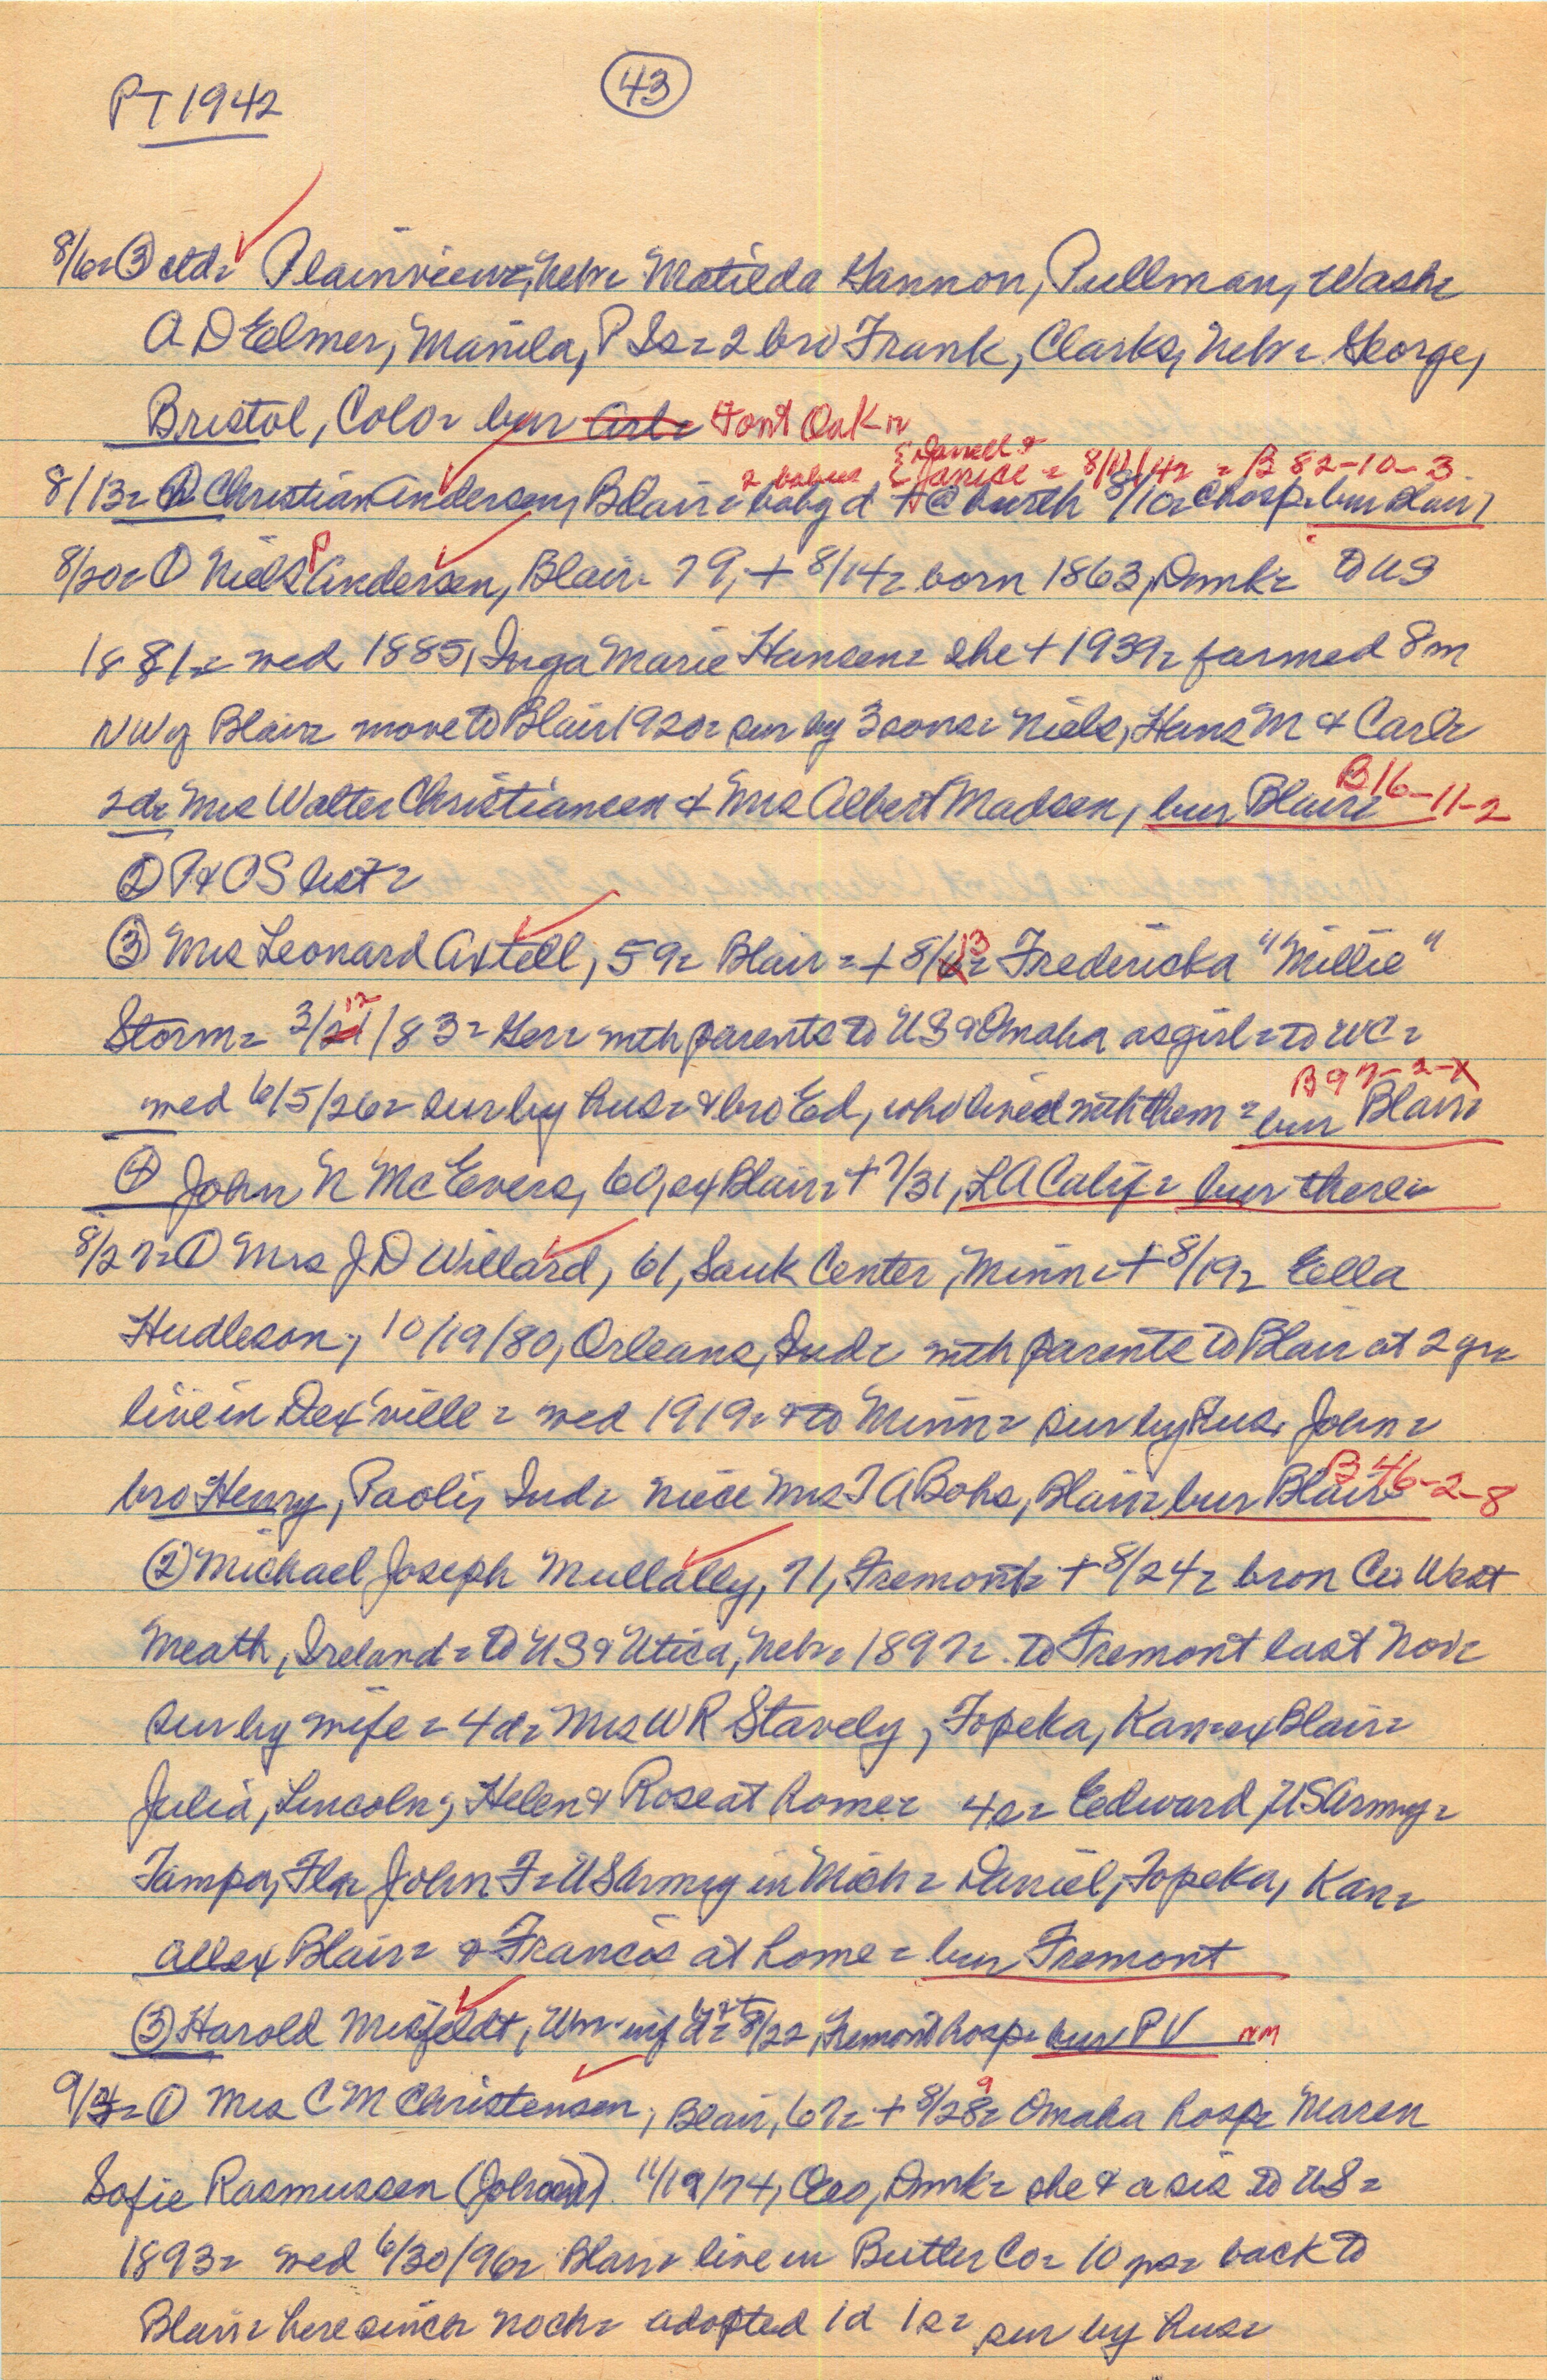 PT 1942
43
8/6= ③ ctd= Plainview, Nebr= Matilda Hannon, Pullman, Wash=
A D Elmer, Manila, P Is= 2 bro Frank, Clarks, Nebr= George,
Bristol, Colo= bur Arl= Font Oak =
2 babies Darrell & Janice = 8/11/42 = B 82-10-3
8/13= ① Christian Andersen, Blair= baby d + @ birth 8/10= C hosp= bur Blair
8/20= ① Niels P Andersen, Blair= 79, + 8/14= born 1863, Dmk= to US
1881= wed 1885, Inga Marie Hansen= she + 1939= farmed 8 m
NW of Blair= move to Blair 1920= sur by 3 sons= Niels, Hans M & Carl=
2d= Mrs Walter Christiansen & Mrs Albert Madsen, bur Blair= B16-11-2
② P & OS list=
③ Mrs Leonard Axtell, 59= Blair= + 8/13= Fredericka "Millie"
Storm= 3/12/83= Ger= with parents to US & Omaha as girl= to WC=
wed 6/5/26= sur by hus= & bro Ed, who lived with them= bur Blair= B97-2-X
④ John N McEvers, 60, ex Blair= + 7/31, LA Calif= bur there=
8/27= ① Mrs J D Willard, 61, Sauk Center, Minn= + 8/19= Ella
Hudleson, 10/19/80, Orleans, Ind= with parents to Blair at 2 yr=
live in Dex'ville= wed 1919= & to Minn= sur by hus, John=
bro Henry, Paoli, Ind= niece Mrs T A Bohs, Blair= bur Blair= B46-2-8
② Michael Joseph Mullally, 71, Fremont= + 8/24= bron Co West
Meath, Ireland= to US & Utica, Nebr= 1897= to Fremont last Nov=
sur by wife= 4d= Mrs W R Stavely, Topeka, Kan= ex Blair=
Julia, Lincoln, Helen & Rose at home= 4s= Edward, US Army=
Tampa, Fla= John F= US Army in Mich= Daniel, Topeka, Kan=
all ex Blair= & Francis at home= bur Fremont
③ Harold Misfeldt, inf d= 8/22, Fremont hosp= bur PV NM
9/3= ① Mrs C M Christensen, Blair, 67= + 8/29= Omaha hosp= Maren
Sofie Rasmussen 11/19/74, Dmk= she & a sis to US=
1893= wed 6/30/96= Blair= live in Butler Co= 10 yrs= back to
Blair= here since= no ch= adopted 1d 1s= sur by hus=